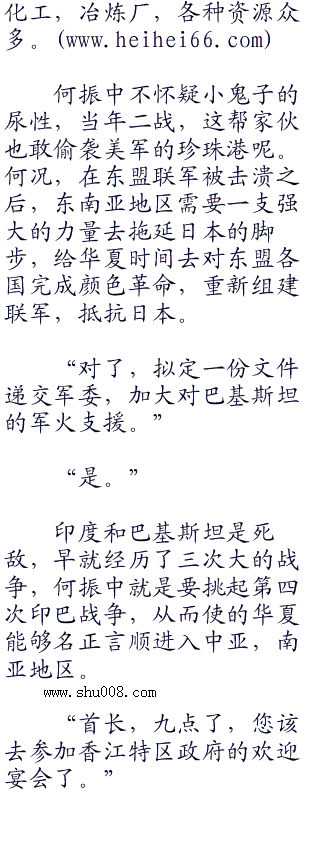 化工，冶炼厂，各种资源众
多。(www.heihei66.com)
何振中不怀疑小鬼子的
尿性，当年二战，这帮家伙
也敢偷袭美军的珍珠港呢。
何况，在东盟联军被击溃之
后，东南亚地区需要一支强
大的力量去拖延日本的脚
步，给华夏时间去对东盟各
国完成颜色革命，重新组建
联军，抵抗日本。
“对了，拟定一份文件
递交军委，加大对巴基斯坦
的军火支援。”
“是。”
印度和巴基斯坦是死
敌，早就经历了三次大的战
争，何振中就是要挑起第四
次印巴战争，从而使的华夏
能够名正言顺进入中亚，南
亚地区。
www.shu008.com
“首长，九点了，您该
去参加香江特区政府的欢迎
宴会了。”